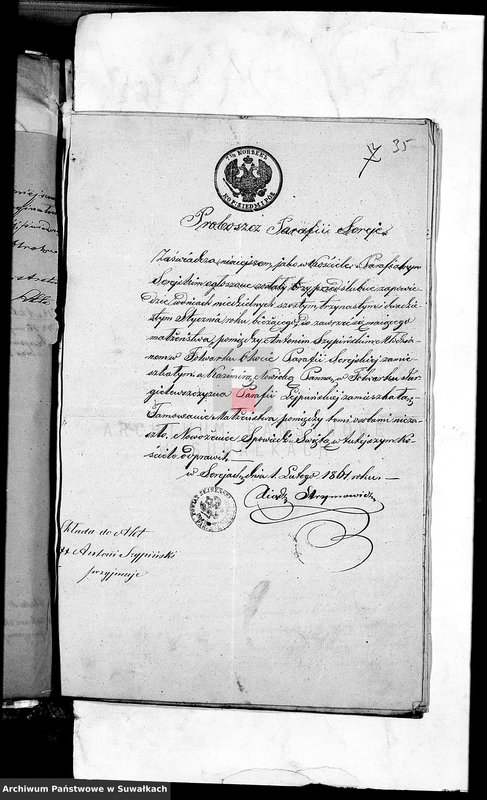 7½ КОПѢЕКЪ
KOP. SIEDM I PÓŁ
7 35
Proboszcz Parafii Sereje
Zaświadcza niniejszem jako w Kościele Parafialnym
Serejskim ogłoszone zostały trzy przedślubne zapowie
dzie w dniach niedzielnych szóstym, trzynastym i dwudzie
stym Stycznia roku bieżącego do zawrzeć się mającego
małżeństwa, pomiędzy Antonim Szypińskim Młodzia
nem w Folwarku Parafii Serejskiej zamie
szkałym, a Kazimierą Nowicką Panną, w Folwarku
Parafii Lejpuńskiej zamieszkałą;
Tamowanie Małżeństwa pomiędzy temi osobami nieza
szło, Nowożeńce Spowiedź Świętą w tutejszym Ko
ściele odprawili.
w Serejach, dnia 1. Lutego 1861 roku.
Składa do Akt
Antoni Szypiński
przyjmuje
Archiwum Państwowe w Suwałkach